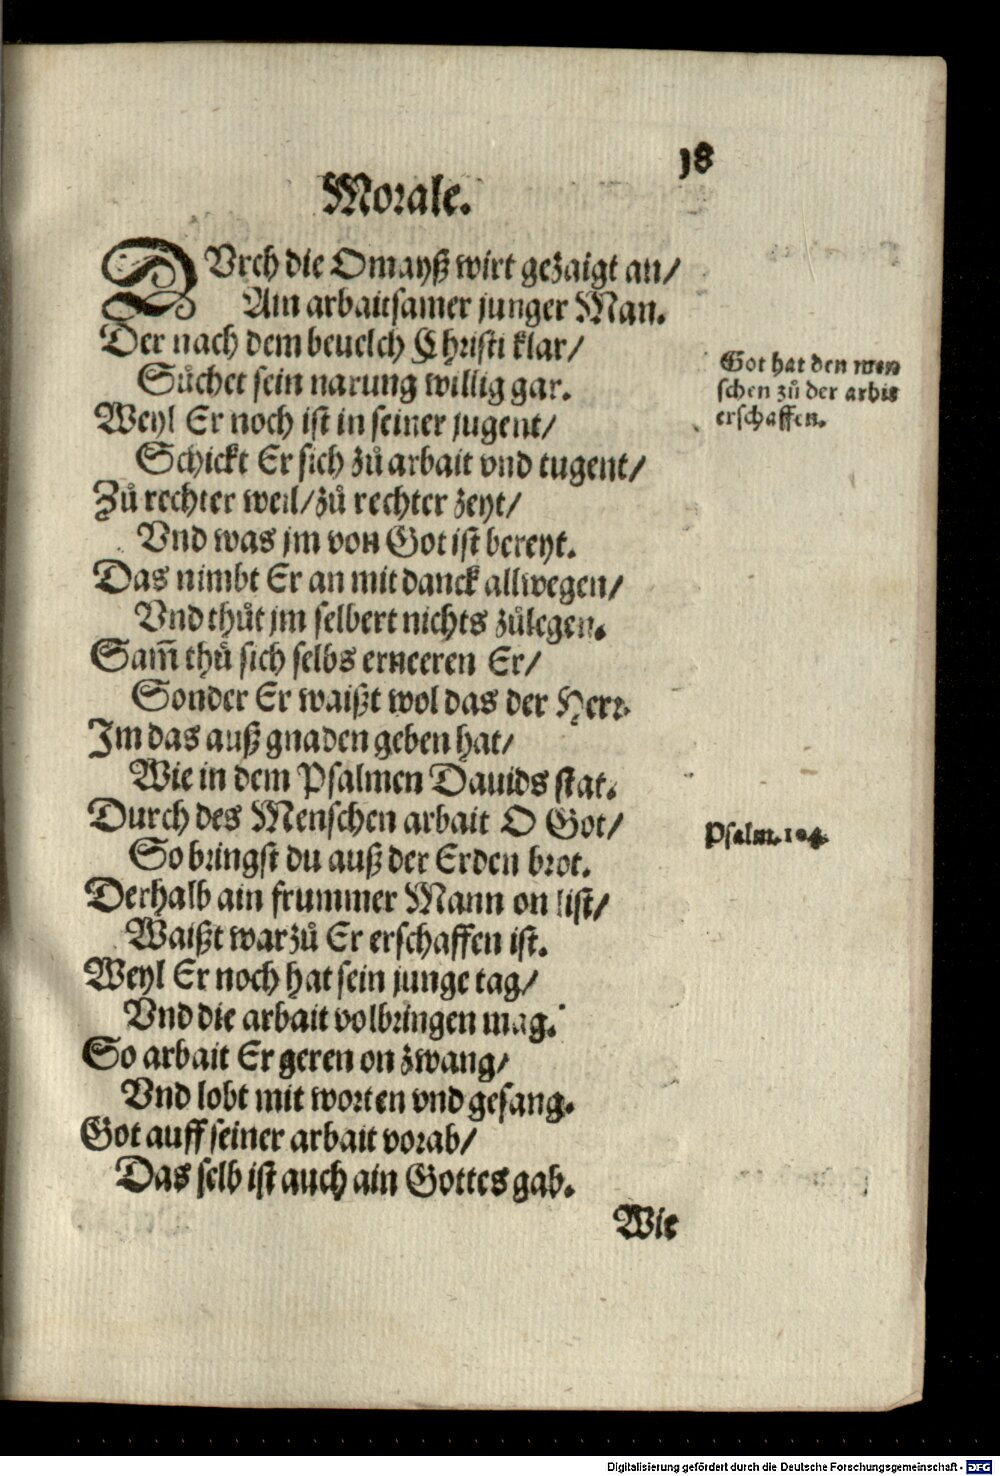 18
Morale.
DVrch die Omayß wirt gezaigt an/
Ain arbaitsamer junger Man.
Der nach dem beuelch Christi klar/
Suͦchet sein narung willig gar.
Weyl Er noch ist in seiner jugent/
Schickt Er sich zuͦ arbait vnd tugent/
Zuͦ rechter weil/zuͦ rechter zeyt/
Vnd was jm von Got ist bereyt.
Das nimbt Er an mit danck allwegen/
Vnd thuͦt jm selbert nichts zuͦlegen.
Sam̄ thuͦ sich selbs erneeren Er/
Sonder Er waißt wol das der Herr
Im das auß gnaden geben hat/
Wie in dem Psalmen Dauids stat.
Durch des Menschen arbait O Got/
So bringst du auß der Erden brot.
Derhalb ain frummer Mann on list/
Waißt warzuͦ Er erschaffen ist.
Weyl Er noch hat sein junge tag/
Vnd die arbait volbringen mag.
So arbait Er geren on zwang/
Vnd lobt mit worten vnd gesang.
Got auff seiner arbait vorab/
Das selb ist auch ain Gottes gab.
Wie
Got hat den men
schen zuͦ der arbit
erschaffen.
Psalm.104.
Digitalisierung gefördert durch die Deutsche Forschungsgemeinschaft - DFG